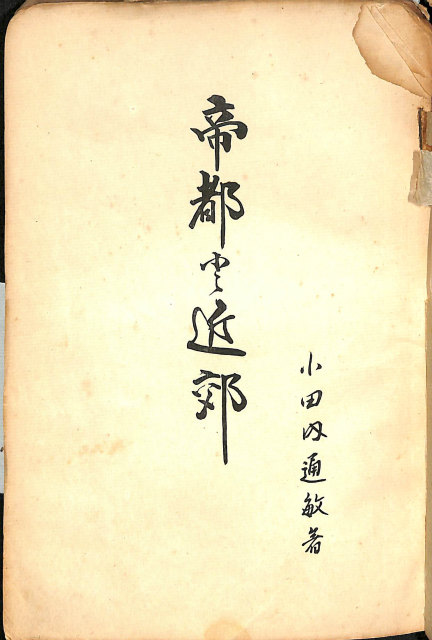 帝都と近郊
小田内通敏著